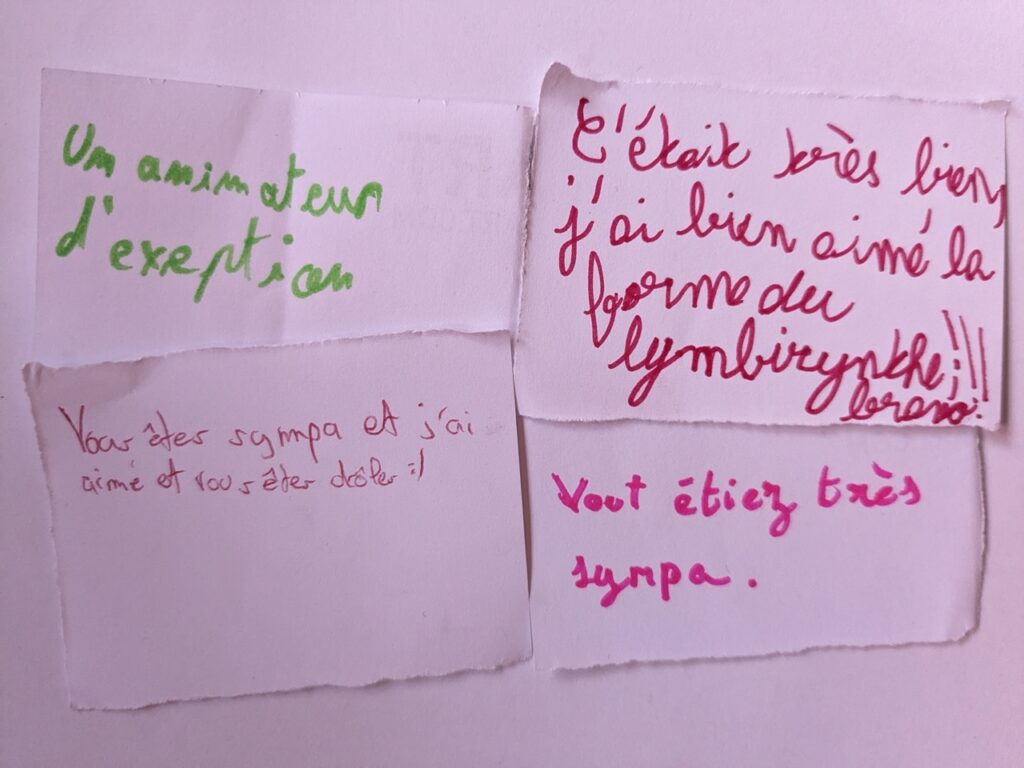 Un animateur
d'exeption
C'était très bien,
j'ai bien aimé la
forme du
lymbirynthe;!!
bravo!
Vous êtes sympa et j'ai
aimé et vous êtes drôles :)
Vout étiez très
sympa.